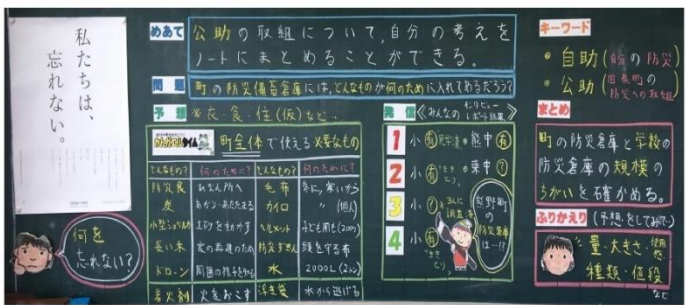 私たちは、
忘れない。
何を
忘れない?
めあて
公助の取組について,自分の考えを
ノートにまとめることができる。
問題
町の防災備蓄倉庫には、どんなものが何のために入れてあるだろう?
予想
※衣・食・住(仮)など…
町全体で使える必要なもの
どんなもの? 何のために? どんなもの? 何のために?
防災食 ひなん所へ 毛布
炭 あかり・あたたまる カイロ 〃 (個人)
小型ショベルカー 土砂を動かす ヘルメット
長い木 家の再建のため 防災ずきん 頭を守る布
ドローン 周囲の様子を知る 水 2000L
着火剤 火をおこす 浮き袋 水から逃げる
発信
《みんなの インタビュー レポート結果》
1 小 有 見学済 熊中 有
2 小 有 東中 ?
3 小 ?
4 小 有
熊野町
の
防災倉庫
は…!?
キーワード
・自助(自分の防災)
・公助(国・県・町の
防災への取組)
まとめ
町の防災倉庫と学校の
防災倉庫の規模の
ちがいを確かめる。
ふりかえり
(予想をしてみて〜)
量・大きさ・使用感・
種類・値段
など